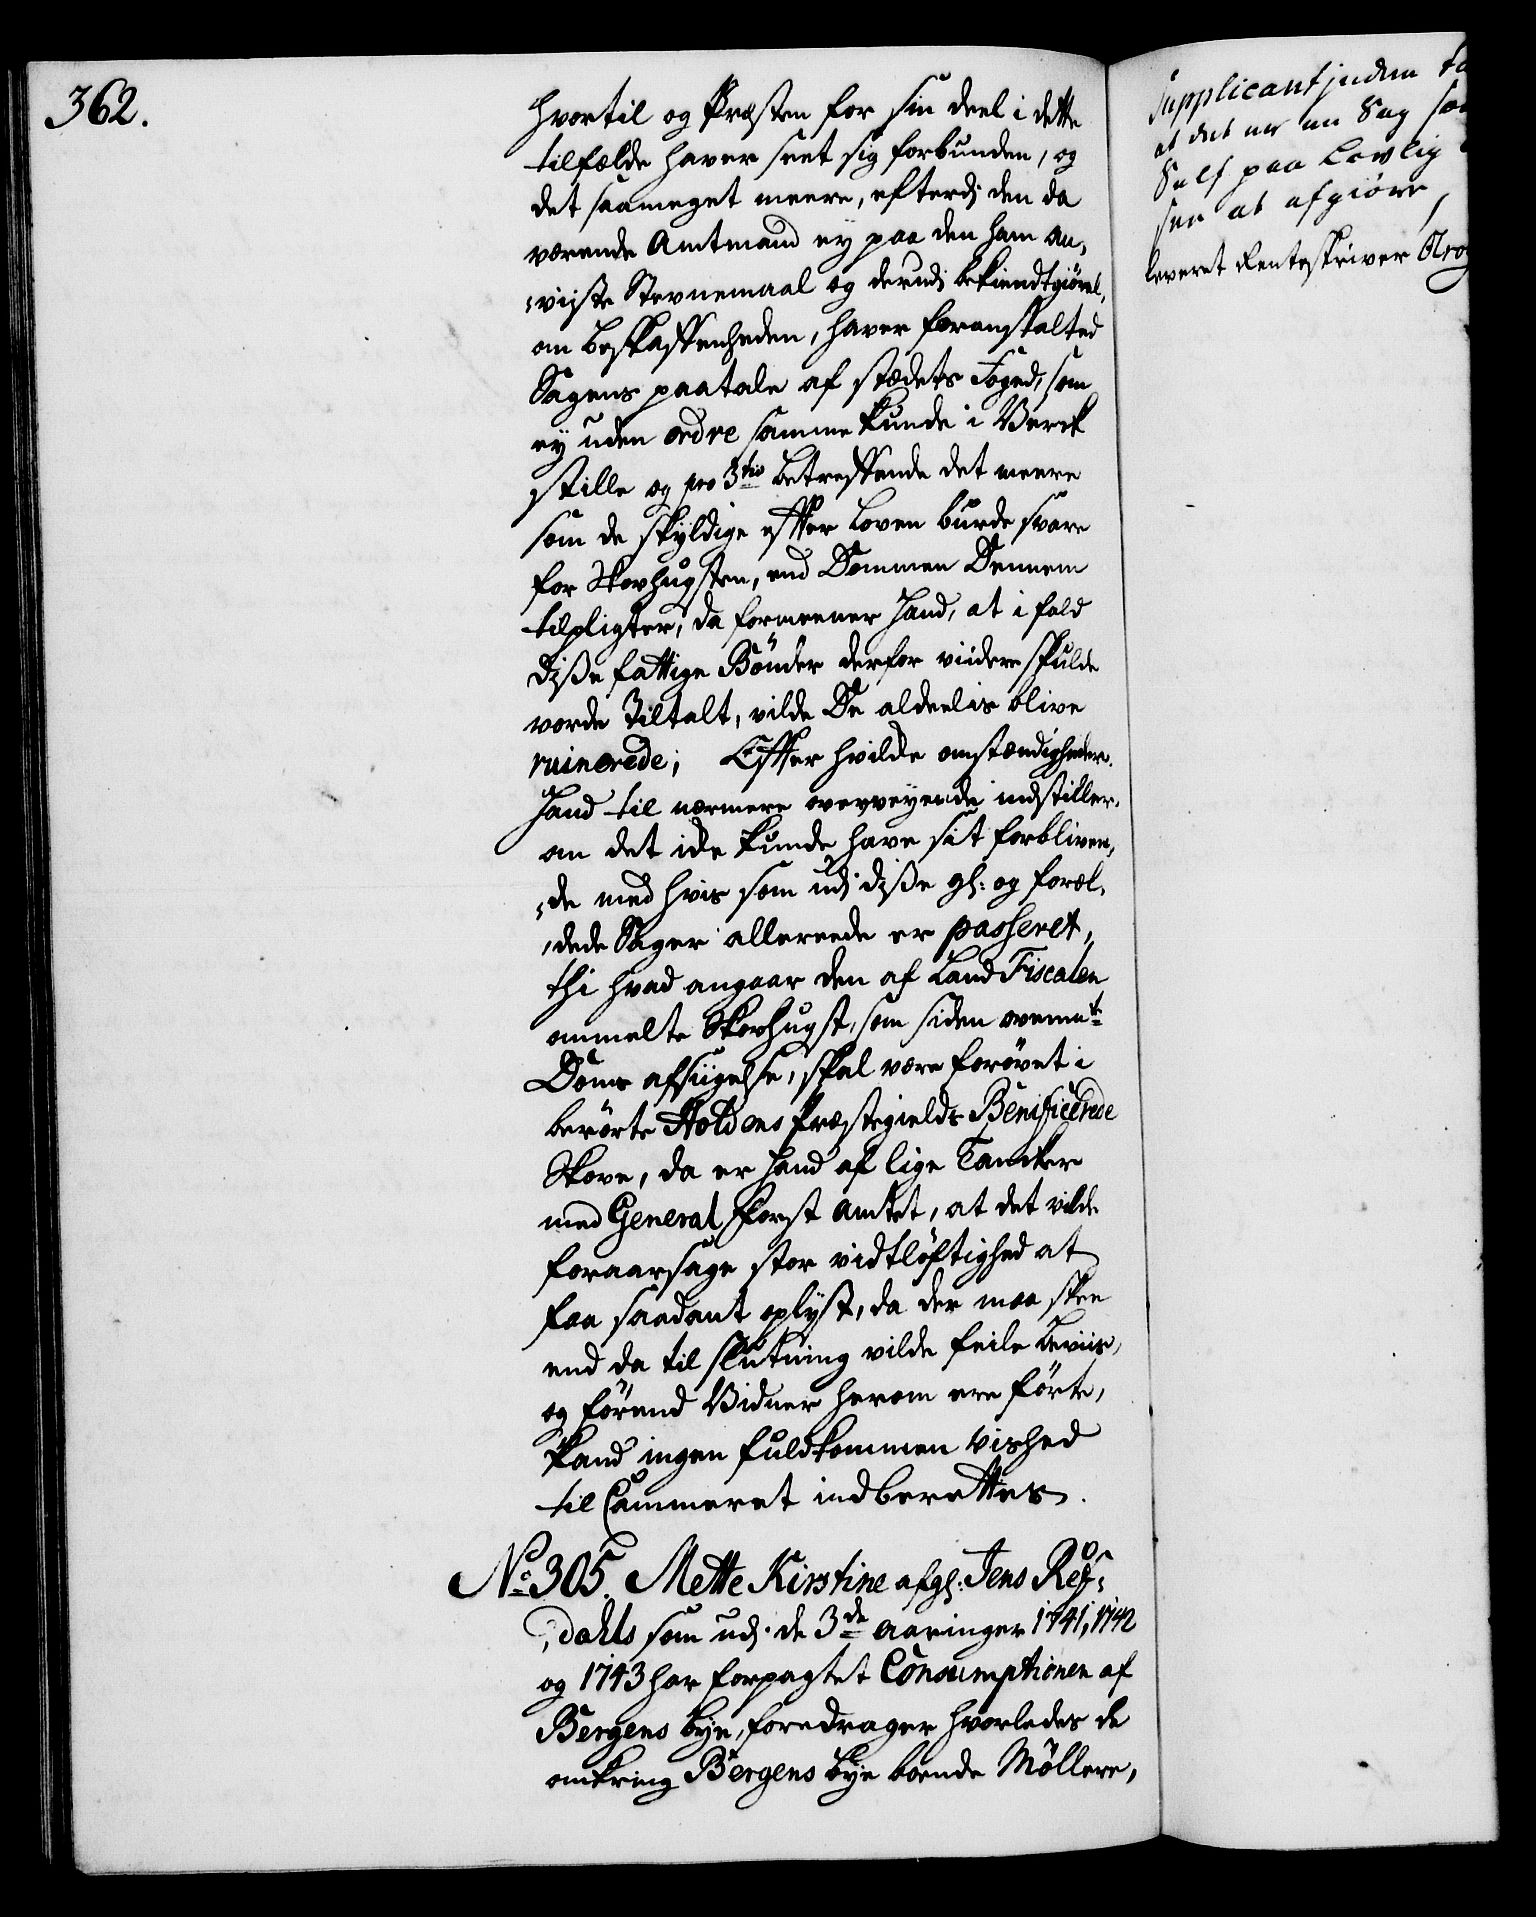 362.
hvortil og Præsten for sin deel i dette
tilfælde haver seet sig forbunden, og
det saameget meere, efterdj den da
værende Amtmand ey paa den ham an,
,viiste Stevnemaal og derudj bekiendtgiörel,
om beskaffenheden, haver foranstalted
Sagens paatale af stædets Foged, som
ey uden ordre samme kunde i Verck
stille og pro 3tio betreffende det meere
som de skyldige efter Loven burde svare
for Skovhugsten, end Dommen Dennem
tilpligter, da formeener Hand, at i fald
disse fattige Bönder derfor viidere skulde
vorde Tiltalt, vilde De aldeelis blive
ruinerede; Efter hvilcke omstændigheder
Hand til nærmere overveyende indstiller,
om det icke kunde have sit forbliven,
,de med hvis som udj disse gl: og foræl,
,dede Sager allereede er passeret,
thi hvad angaar den af Land Fiscalen
anmelte Skovhugst, som siden ovenmte
Doms afsiigelse, skal være forövet i
berörte Holdens Præstegields Beneficerede
Skove, da er Hand af lige Tancker
med General Forst Amtet, at det vilde
foraarsage stor vidtlöftighed at
faa saadant oplyst, da der maa skee
end da til slutning vilde feile Beviis,
og förend Vidner herom ere förte,
kand ingen fuldkommen vished
til Cammeret indberettes.
No 305. Mette Kirstine afgl: Jens Rey,
,dahls som udj de 3de aaringer 1741, 1742
og 1743 har forpagtet Consumptionen af
Bergens bye, foredrager hvorledes de
omkring Bergens bye boende Möllere,
Supplicant inden
at det er en Sag
Self paa Lovlig
see at afgiöre,
leveret Renteskriver